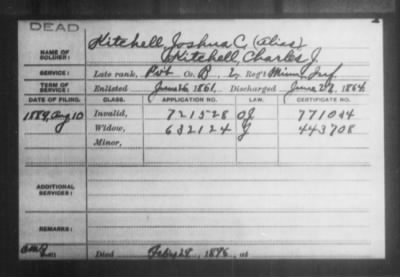 DEAD
NAME OF SOLDIER: Kitchell, Joshua C. (alias)
Kitchell, Charles J.
SERVICE: Late rank, Pvt Co. B, 2, Reg't Minn Inf.
TERM OF SERVICE: Enlisted June 26 1861, Discharged June 28, 1864
DATE OF FILING. CLASS. APPLICATION NO. LAW. CERTIFICATE NO.
1889, Aug 10 Invalid, 721528 771034
Widow, 632124 443708
Minor,
ADDITIONAL SERVICES:
REMARKS:
Died Feby 28, 1896, at